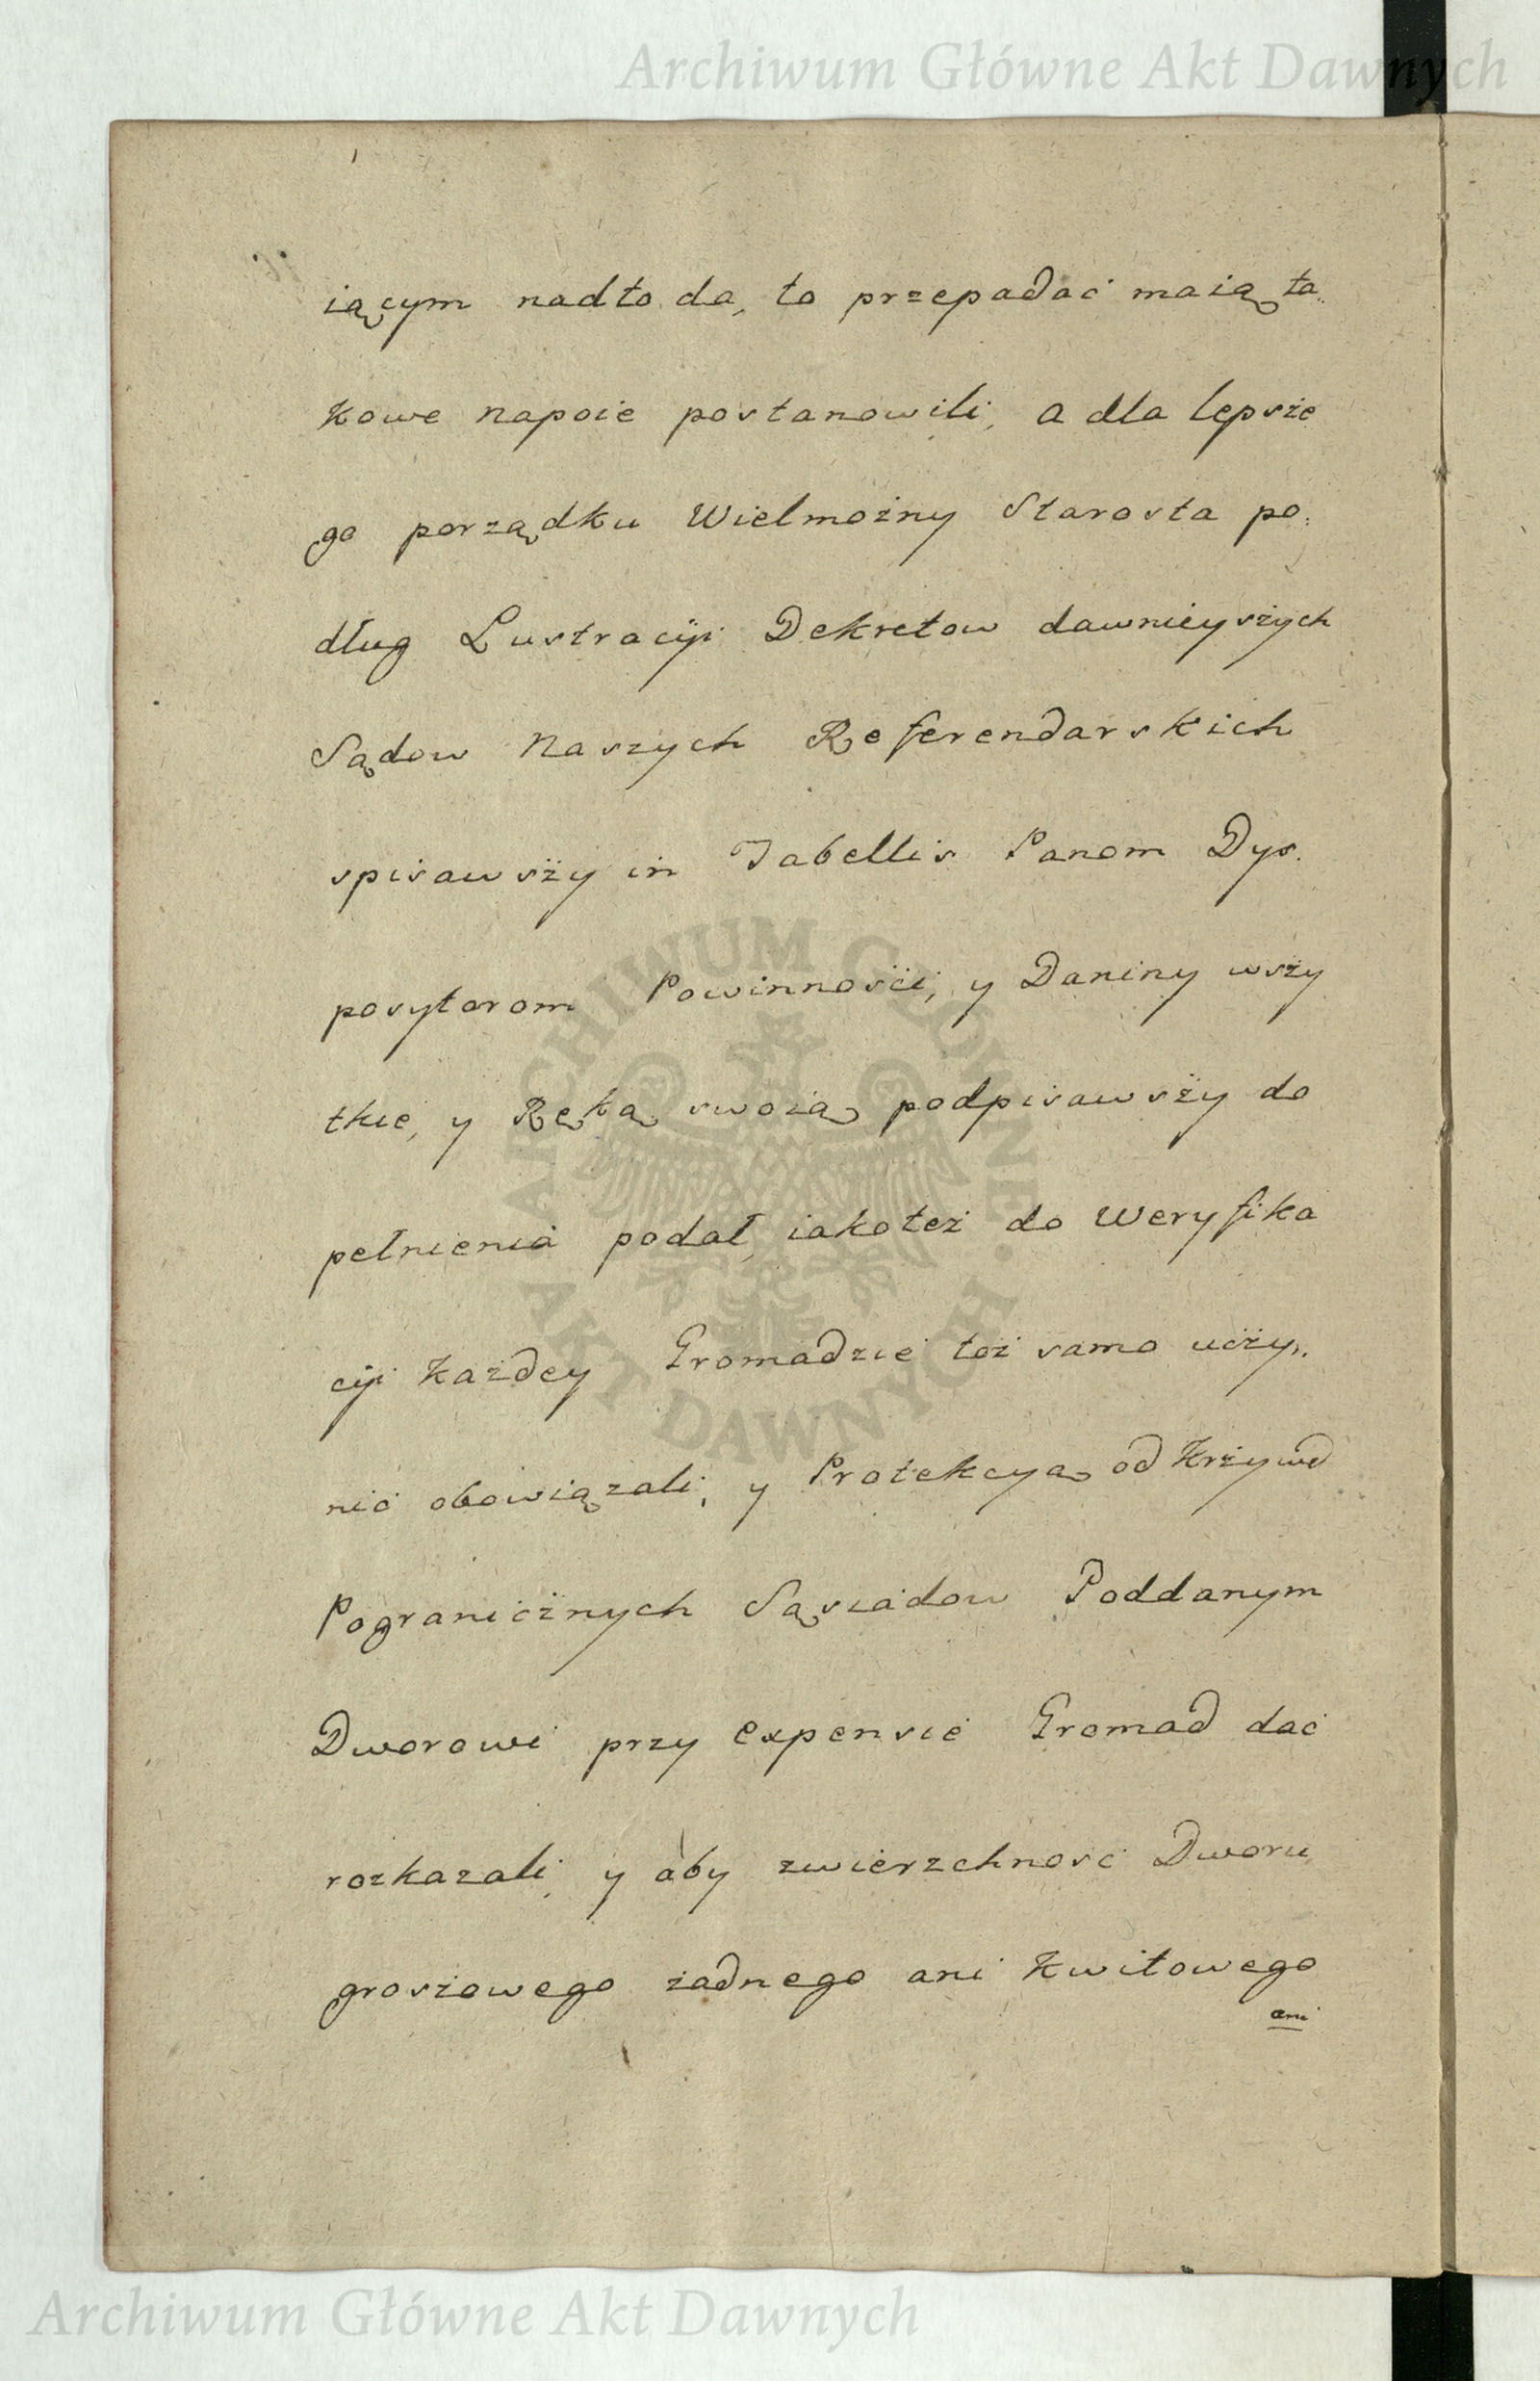 Archiwum Główne Akt Dawnych
iącym nadto da, to przepadać maią ta„
kowe napoie postanowili, a dla lepsże
go porządku Wielmożny Starosta po„
dług Lustracyi Dekretow dawnieyszych
Sądow Naszych Referendarskich
spisawszy in Tabellis Panom Dys.
posytorom Powinności, y Daniny wszy
tkie, y Ręką swoią podpisawszy do
pełnienia podał, iakoteż do Weryfika
cyi każdey Gromadzie toż samo uczy„
nić obowiązali, y Protekcyą od Krzywd
Pogranicznych Sąsiadow Poddanym
Dworowi przy Expensie Gromad dać
rozkazali, y aby zwierzchność Dworu
groszowego żadnego ani kwitowego
ani
ARCHIWUM GŁÓWNE · AKT DAWNYCH ·
Archiwum Główne Akt Dawnych